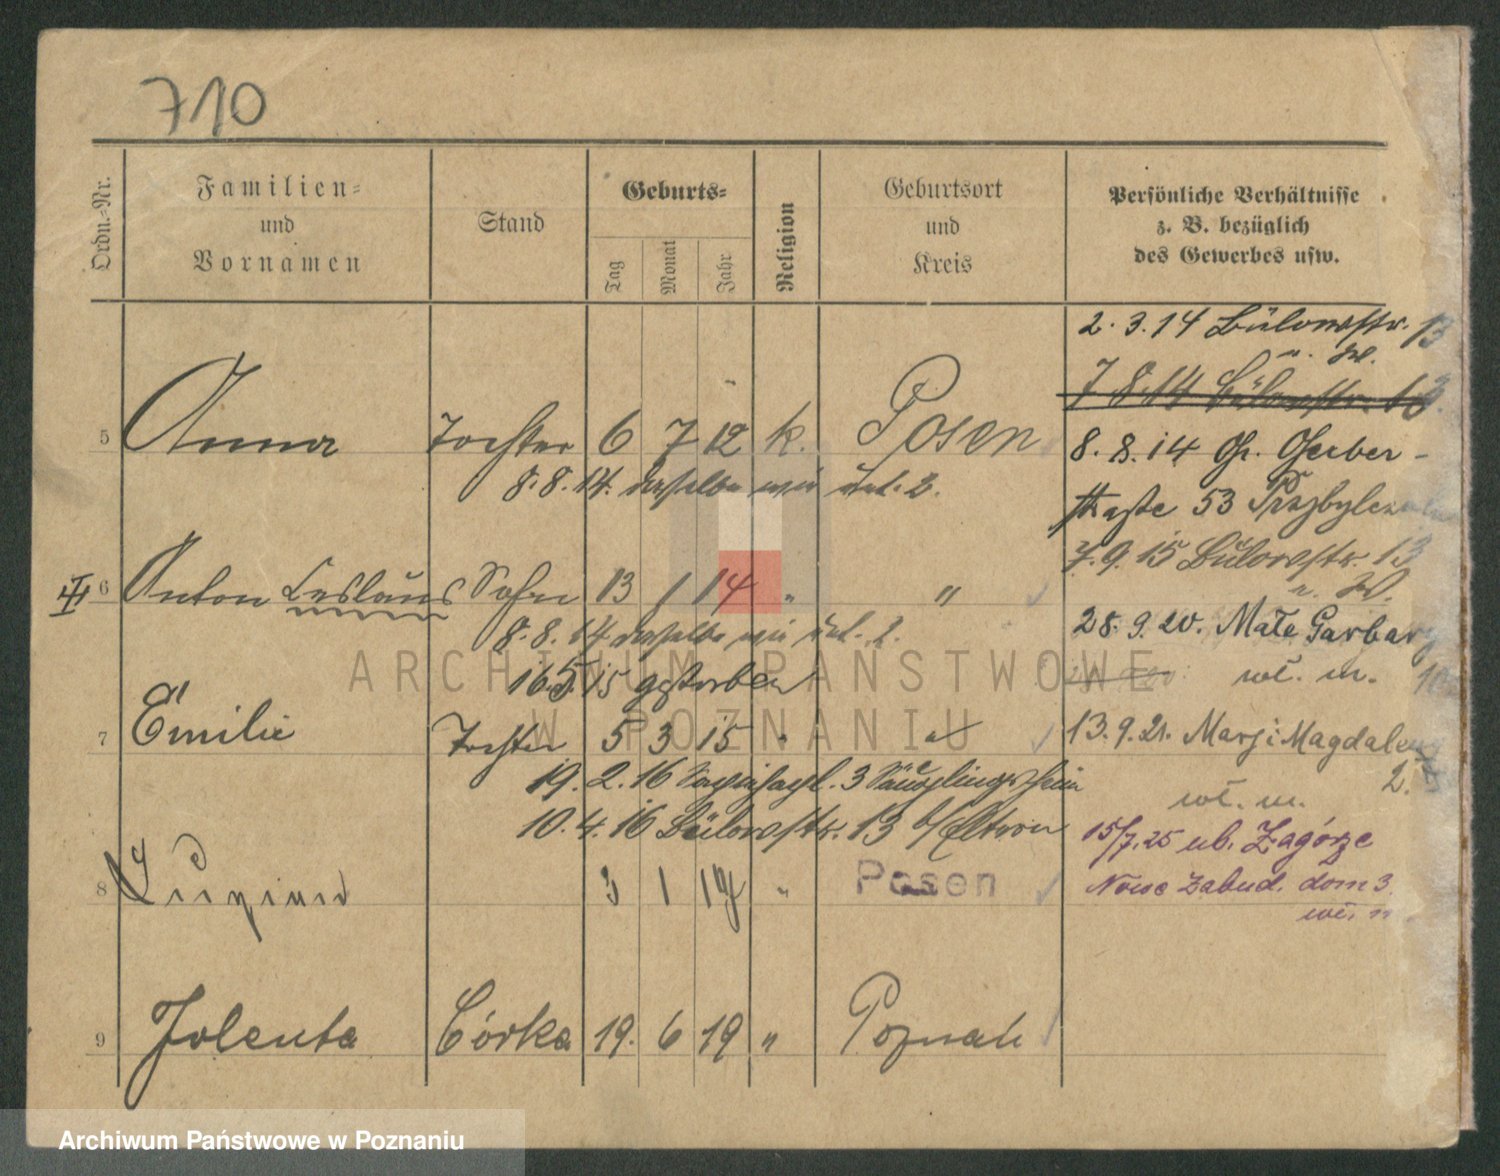 710
Ordn.-Nr.
Familien-
und
Vornamen
Stand
Geburts-
Tag
Monat
Jahr
Religion
Geburtsort
und
Kreis
Persönliche Verhältnisse
z. B. bezüglich
des Gewerbes usw.
2. 3. 14 Bülowstr. 13
7. 8. 14 Bülowstr.
5 Anna Tochter 6 7 12 k. Posen
8. 8. 14 Gr. Gerber-
straße 53
8. 8. 14. dasselbe wie
7. 9. 15 Bülowstr. 13
6 Anton Leslaus Sohn 13 1 14 " "
8. 8. 14 dasselbe wie
28. 9. 20. Małe Garbary
wł. m.
16. 5. 15 gestorben
7 Emilie Tochter 5 3 15 " "
13. 9. 21. Marji Magdaleny
2.
wł. m.
19. 2. 16 3 Säuglingsheim
10. 4. 16 Bülowstr. 13 b/Eltern
15/7. 25 ul. Zagórze
8 3 1 17 " Posen
Nowe Zabud. dom 3
wł.
9 Jolenta Córka 19. 6 19 " Poznań
ARCHIWUM PAŃSTWOWE
W POZNANIU
Archiwum Państwowe w Poznaniu